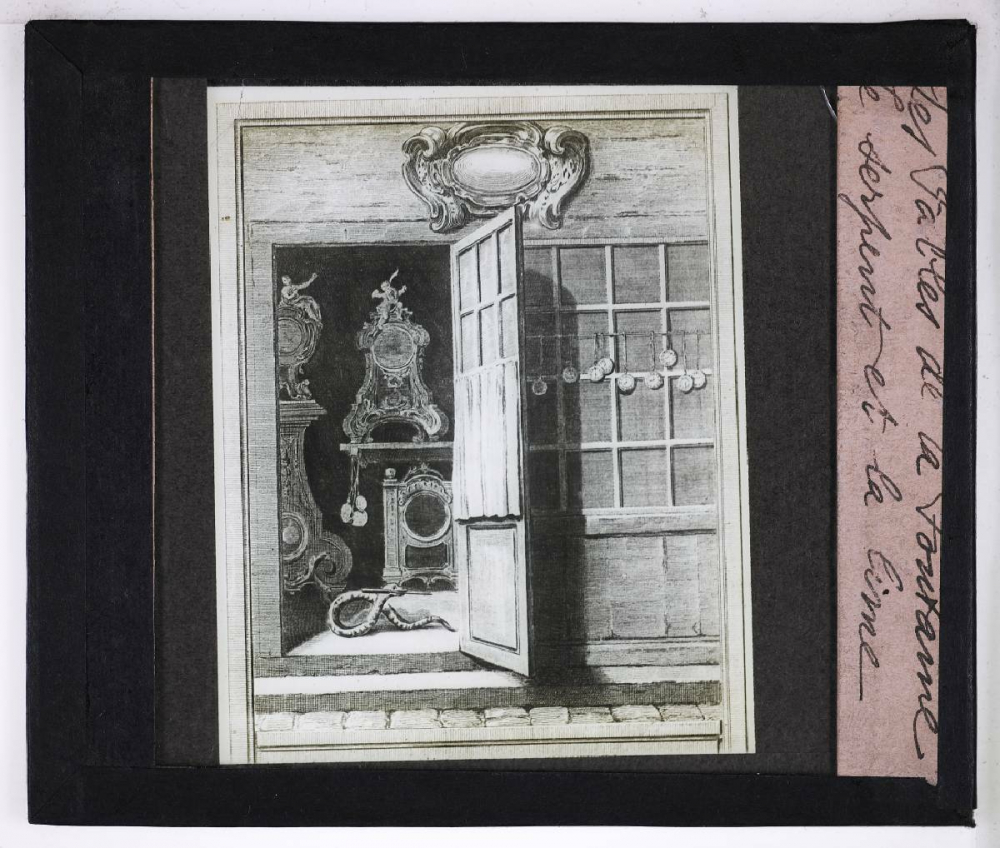 Les Fables de la Fontaine
Le serpent et la lime